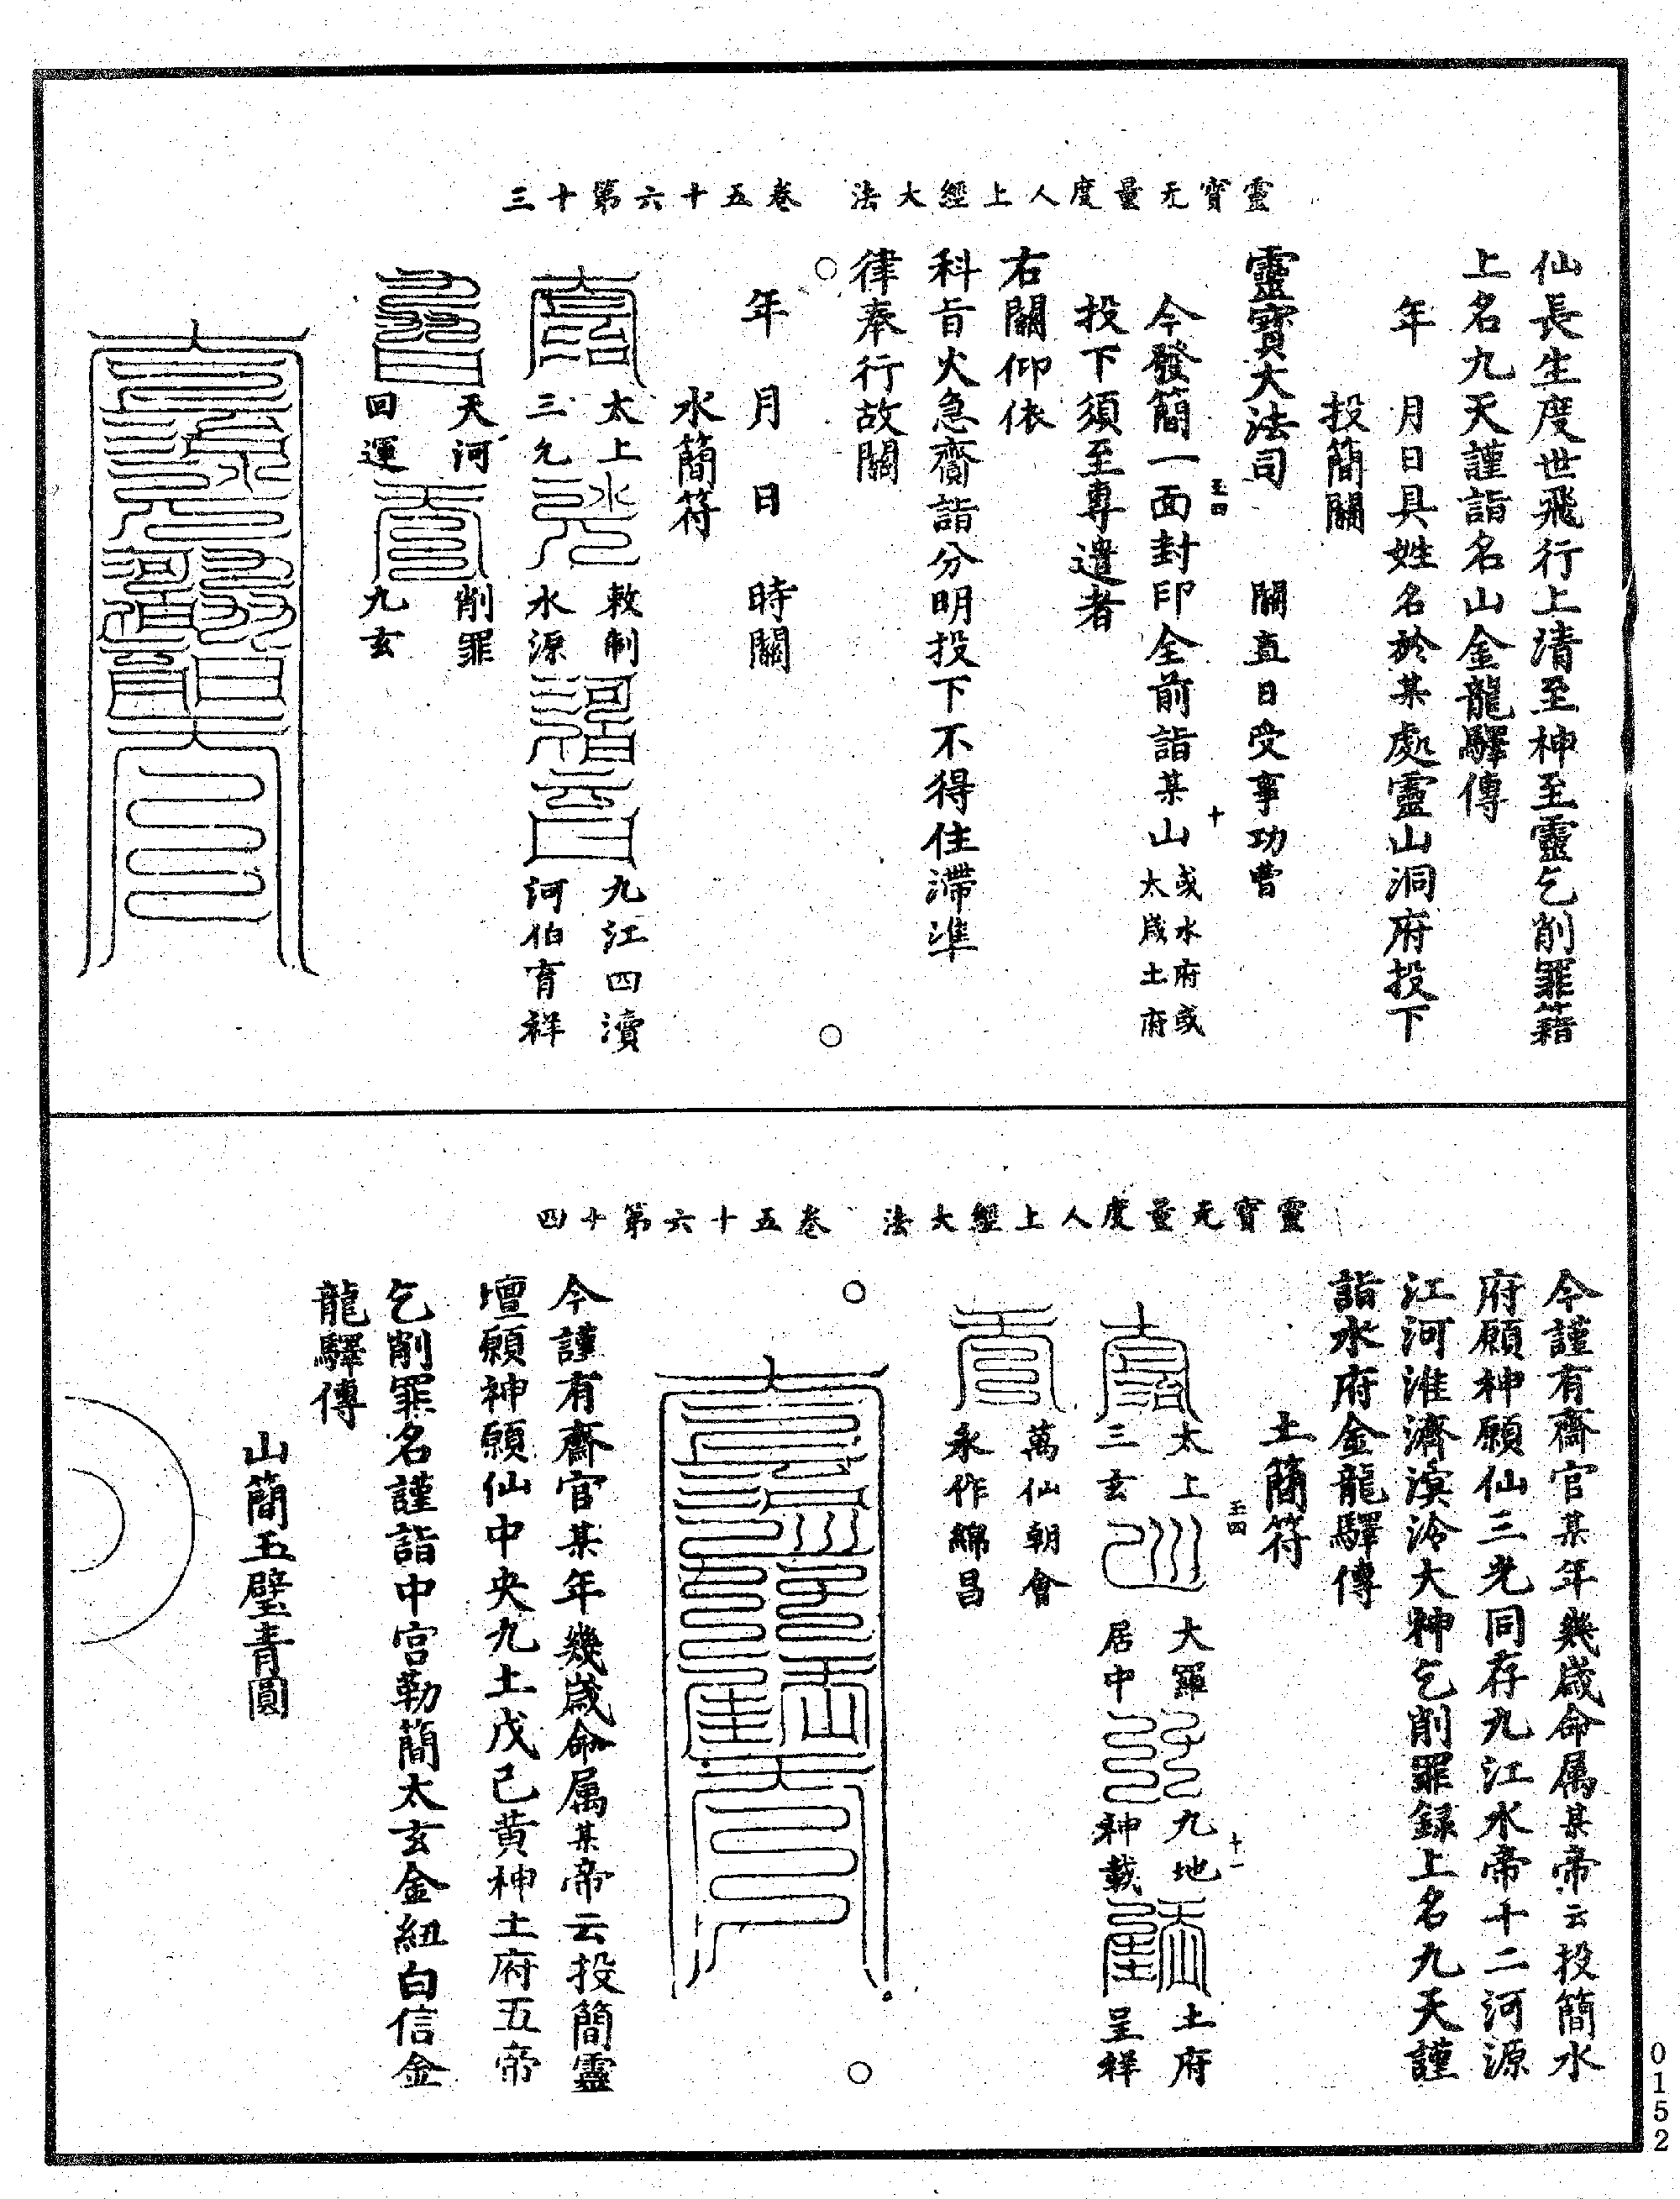 靈寶无量度人上經大法　卷五十六第十三
仙長生度世飛行上清至神至靈乞削罪籍
上名九天謹詣名山金龍驛傳
年　月日具姓名於某處靈山洞府投下
投簡關
靈寶大法司　關直日受事功曹
今發簡一面封印全前詣某山或水府或太歲土府
投下須至專遣者
右關仰依
科旨火急齎詣分明投下不得住滯準
律奉行故關
年　月　日　時關
水簡符
太上　敕制　九江四瀆
三元　水源　河伯育祥
天河　削罪
回運　九玄
靈寶无量度人上經大法　卷五十六第十四
今謹有齋官某年幾歲命属某帝云投簡水
府願神願仙三光同存九江水帝十二河源
江河淮濟溟泠大神乞削罪録上名九天謹
詣水府金龍驛傳
土簡符
太上　大羅　九地　土府
三玄　居中　神載　呈祥
萬仙朝會
永作綿昌
今謹有齋官某年幾歲命属某帝云投簡靈
壇願神願仙中央九土戊己黄神土府五帝
乞削罪名謹詣中宮勒簡太玄金紐白信金
龍驛傳
山簡玉璧青圓
0152